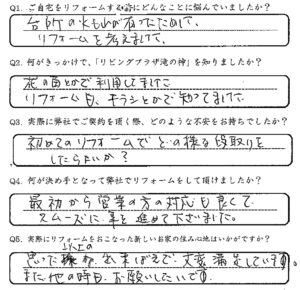 Q1. ご自宅をリフォームする時にどんなことに悩んでいましたか?
台所の水もれがあったために、
リフォームを考えました。
Q2. 何がきっかけで、「リビングプラザ滝の神」を知りましたか?
花の苗とかで利用してました
リフォームも、チラシとかで知ってました。
Q3. 実際に弊社でご契約を頂く際、どのような不安をお持ちでしたか?
初めてのリフォームでどの様な段取りを
したらよいか?
Q4. 何が決め手となって弊社でリフォームをして頂けましたか?
最初から営業の方の対応も良くて
スムーズに事を進めて下さいました。
Q5. 実際にリフォームをおこなった新しいお家の住み心地はいかがですか?
思った以上の できばえで、大変満足しています。
また他の時も、お願いしたいです。